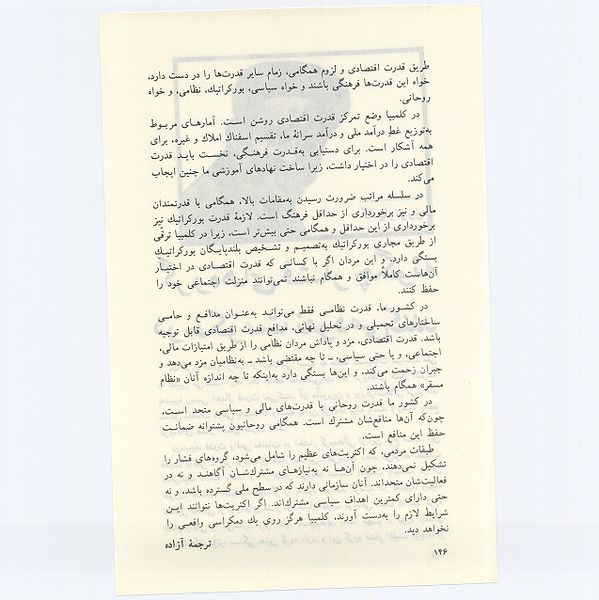 طریق قدرت اقتصادی و لزوم همگامی، زمام سایر قدرت‌ها را در دست دارد،
خواه این قدرت‌ها فرهنگی باشند و خواه سیاسی، بورکراتیك، نظامی، و خواه
روحانی.
در کلمبیا وضع تمرکز قدرت اقتصادی روشن است. آمارهای مربوط
به‌توزیع غلطِ درآمد ملی و درآمد سرانهٔ ما، تقسیم اسفناك املاك و غیره، برای
همه آشکار است. برای دستیابی به‌قدرت فرهنگی، نخست باید قدرت
اقتصادی را در اختیار داشت، زیرا ساخت نهادهای آموزشی ما چنین ایجاب
می‌کند.
در سلسله مراتب ضرورت رسیدن به‌مقامات بالا، همگامی با قدرتمندان
مالی و نیز برخورداری از حداقل فرهنگ است. لازمهٔ قدرت بورکراتیك نیز
برخورداری از این حداقل و همگامی حتی بیش‌تر است، زیرا در کلمبیا ترقّی
از طریق مجاری بورکراتیك به‌تصمیم و تشخیص بلندپایگان بورکراتیك
بستگی دارد. و این مردان اگر با کسانی که قدرت اقتصادی در اختیار
آن‌هاست کاملاً موافق و همگام نباشند نمی‌توانند منزلت اجتماعی خود را
حفظ کنند.
در کشور ما، قدرت نظامی فقط می‌تواند به‌عنوان مدافع و حامی
ساختارهای تحمیلی و در تحلیل نهائی، مدافع قدرت اقتصادی قابل توجیه
باشد. قدرت اقتصادی، مزد و پاداش مردان نظامی را از طریق امتیازات مالی،
اجتماعی، و یا حتی سیاسی، ــ تا چه مقتضی باشد ــ به‌نظامیان مزد می‌دهد و
جبران زحمت می‌کند، و این‌ها بستگی دارد به‌اینکه تا چه اندازه آنان «نظام
مستقر» همگام باشند.
در کشور ما قدرت روحانی با قدرت‌های مالی و سیاسی متحد است،
چون‌که آن‌ها منافع‌شان مشترك است. همگامی روحانیون پشتوانه ضمانت
حفظ این منافع است.
طبقات مردمی، که اکثریت‌های عظیم را شامل می‌شود، گروه‌های فشار را
تشکیل نمی‌دهند، چون آن‌هـا نه به‌نیازهـای مشترك‌شـان آگاهنـد و نه در
فعالیت‌شان متحداند. آنان سازمانی دارند که در سطح ملی گسترده باشد، و نه
حتی دارای کمترین اهداف سیاسی مشترك‌اند. اگر اکثریت‌ها نتوانند این
شرایط لازم را به‌دست آورند، کلمبیا هرگز روی یك دمکراسی واقعی را
نخواهد دید.
ترجمهٔ آزاده
۱۴۶